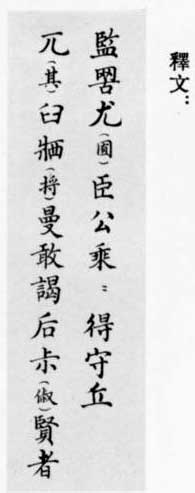 釋文：
監罟尤（囿）臣公乘﹦得守丘
丌（其）臼𨟻（将）曼敢謁后尗（俶）賢者